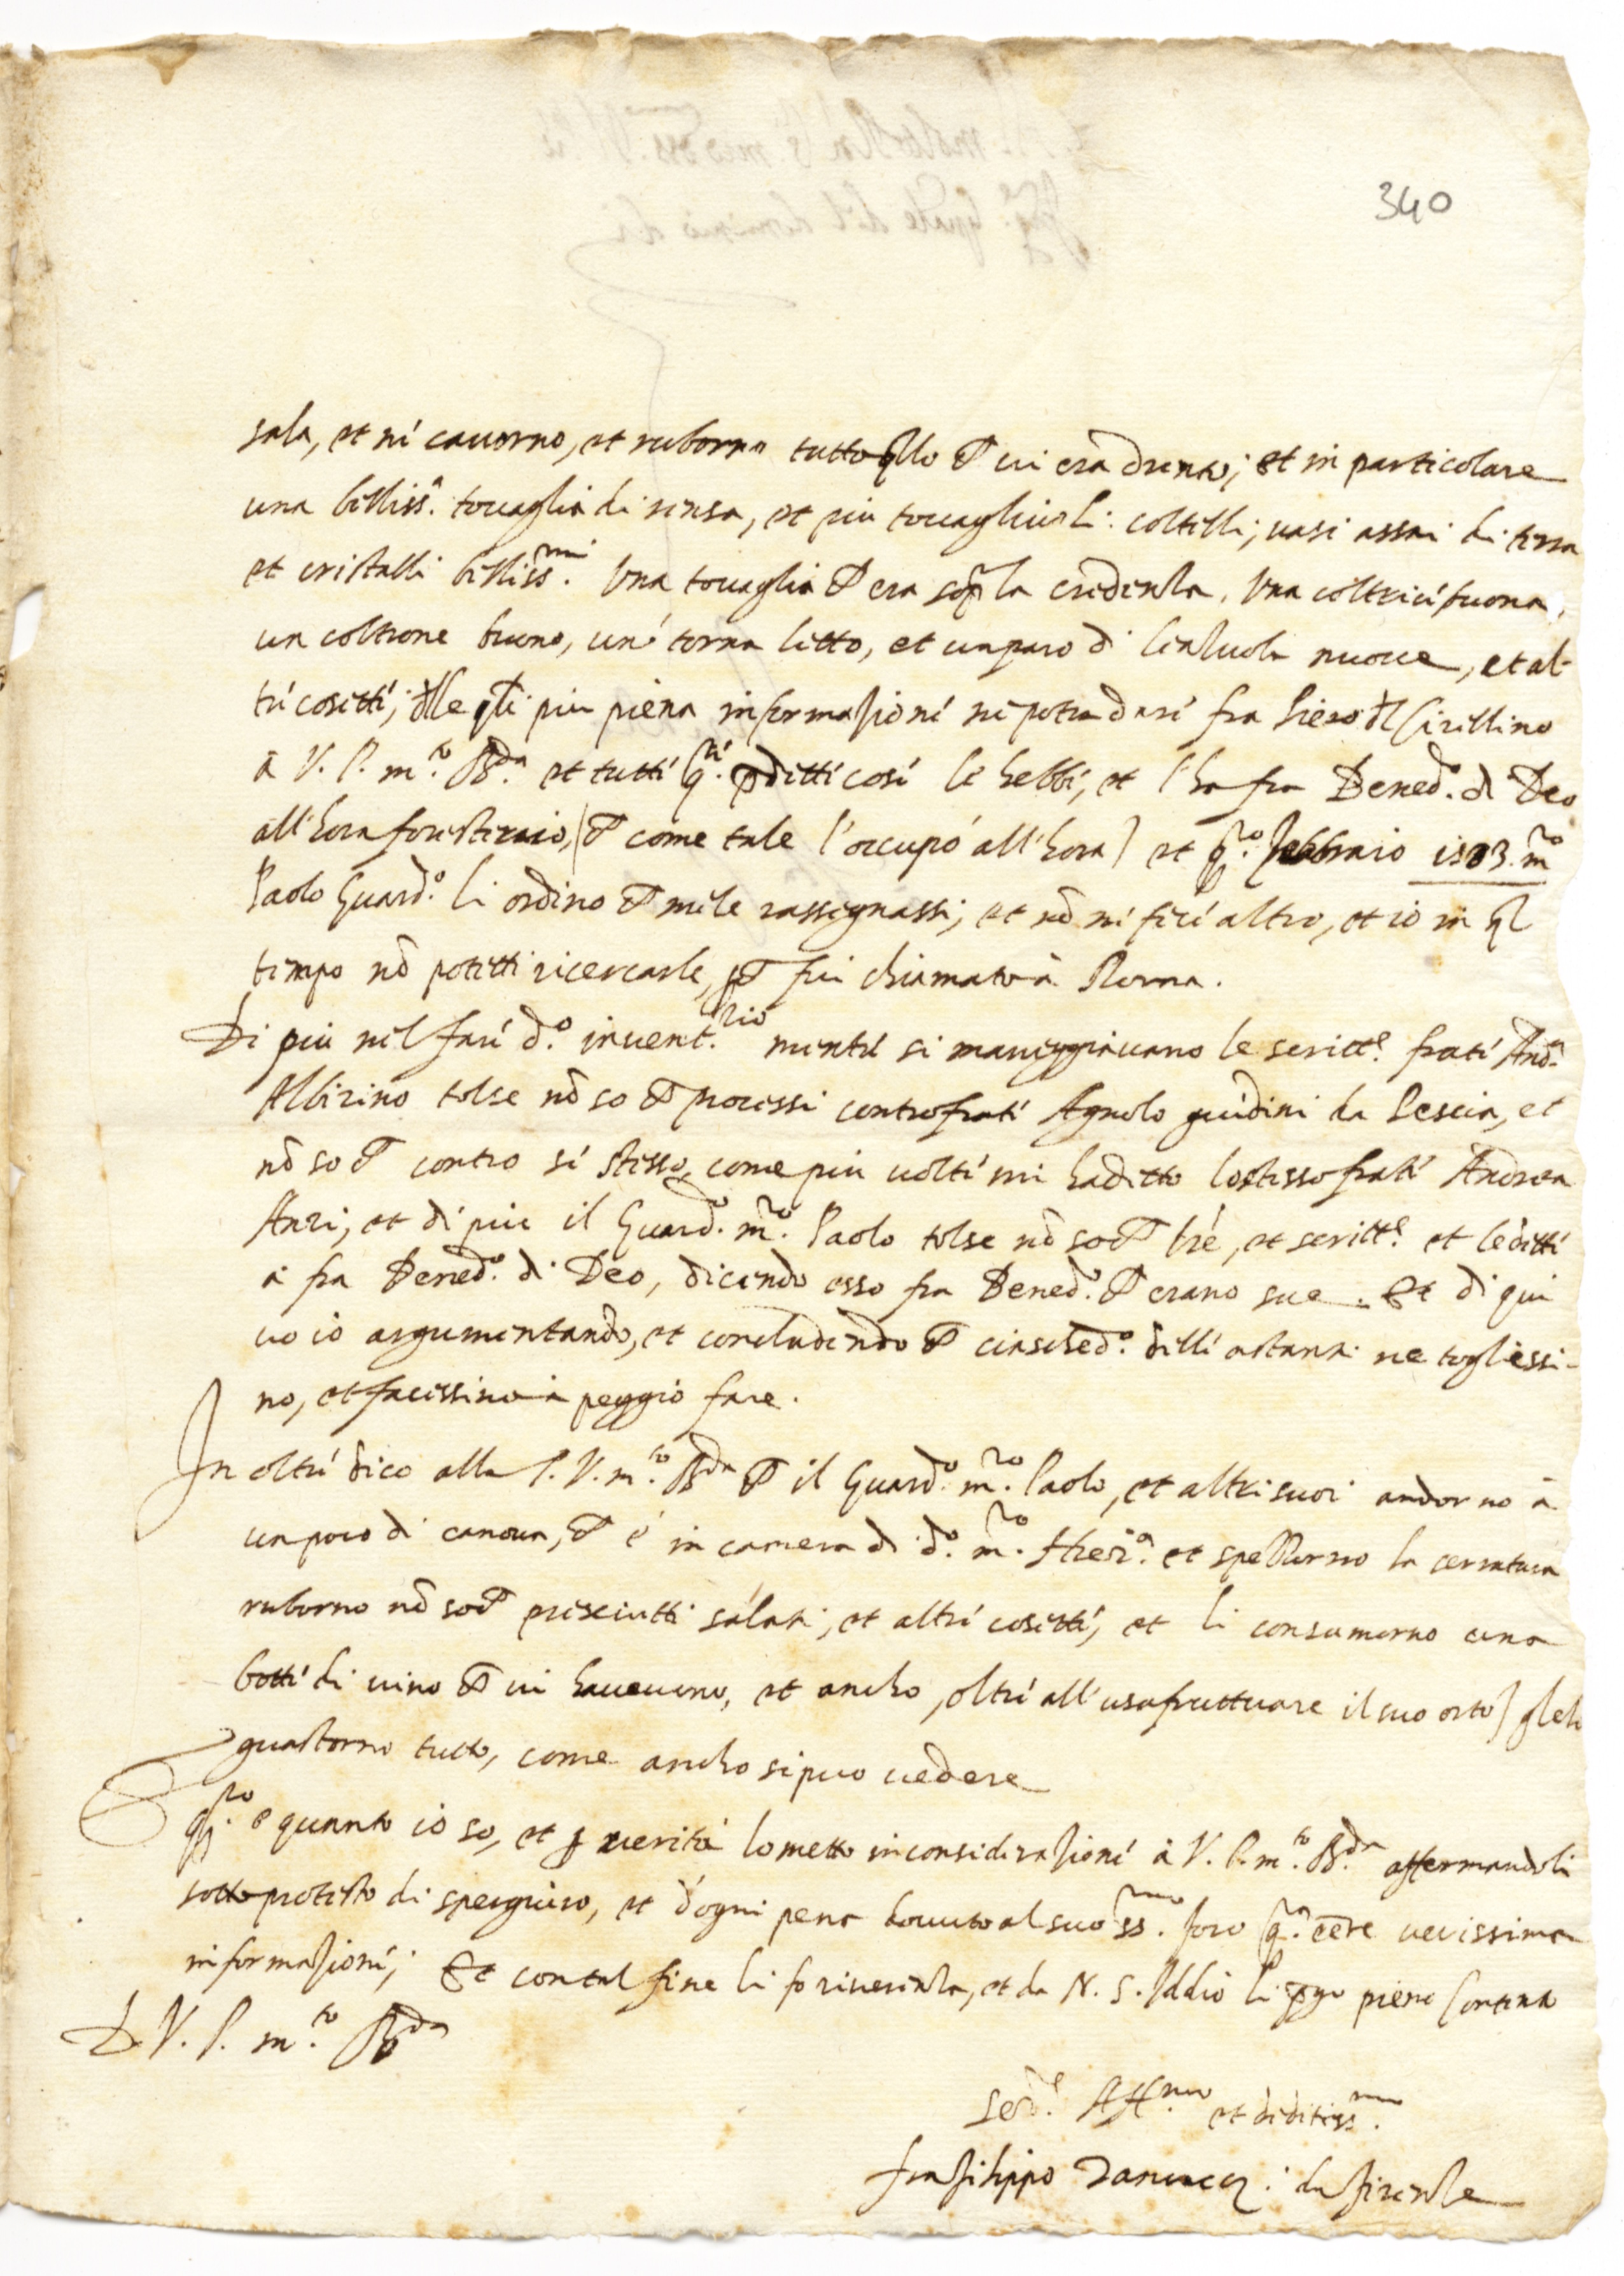 340
sala, et ne cavorno, et ruborno tutto qllo ch vi era drento; et in particolare
una belliss.a tovaglia di rensa, et piu tovagliuoli: coltelli; vasi assai di terra
et cristalli belliss.mi Una tovaglia ch era sopra la credenza. Una coltrice buona,
un coltrone buono, un' torna letto, et un paro di lenzuola nuove, et al-
tre cosette; dlle qli piu piena informazione ne potra dare fra Piero dl Cirillino
à V. P. m.to R.da et tutti q.ti pditti cosi le hebbe, et l'ha fra Bened.o di Deo
all'hora forestieraio, (ch come tale l'occupò all'hora) et q.o febbraio m.ro
Paolo Guard.o li ordino ch me le rassegnassi; et nō ne fece altro, et io in ql
tempo nō potetti ricercarle, pch fui chiamato à Roma.
Di piu nel fare d.o invent.rio mentre si maneggiavano le scritt.e frate And.a
Albizino tolse nō so ch processi contro frate Agnolo guidini da Pescia, et
nō so ch contro se stesso, come piu volte mi ha ditto lo stesso frate Andrea
Anzi, et di piu il Guard.o m.ro Paolo tolse nō so ch lre, et scritt.e et le dette
à fra Bened.o di Deo, dicendo esso fra Bened.o ch erano sue. Et di qui
vo io argumentando, et concludendo ch ciasched.o delli astanti ne togliessi-
no, et facessino à peggio fare.
In oltre dico alla P. V. m.to R.da ch il Guard.o m.ro Paolo, et altri suoi andorno à
un poco di canova, ch è in camera di d.o m.ro et spezzorno la serratura
ruborno nō so ch presciutti salati, et altre cosette, et li consumorno una
botte di vino ch vi havevono, et ancho, oltre all'usufruttuare il suo orto)
guastorno tutto, come ancho si puo vedere
q.to e quanto io so, et p verità lo metto in considerazione à V. P. m.to R.da affermandoli
sotto protesto di spergiuro, et d'ogni pena dovuto al suo ss.mo foro q.a eēre verissima
informazione; Et con tal fine li fo riverenza, et da N. S. Iddio li pgo piena
D. V. P. m.to R.da
Ser.e Aff.mo et deditiss.mo
fra filippo da firenze